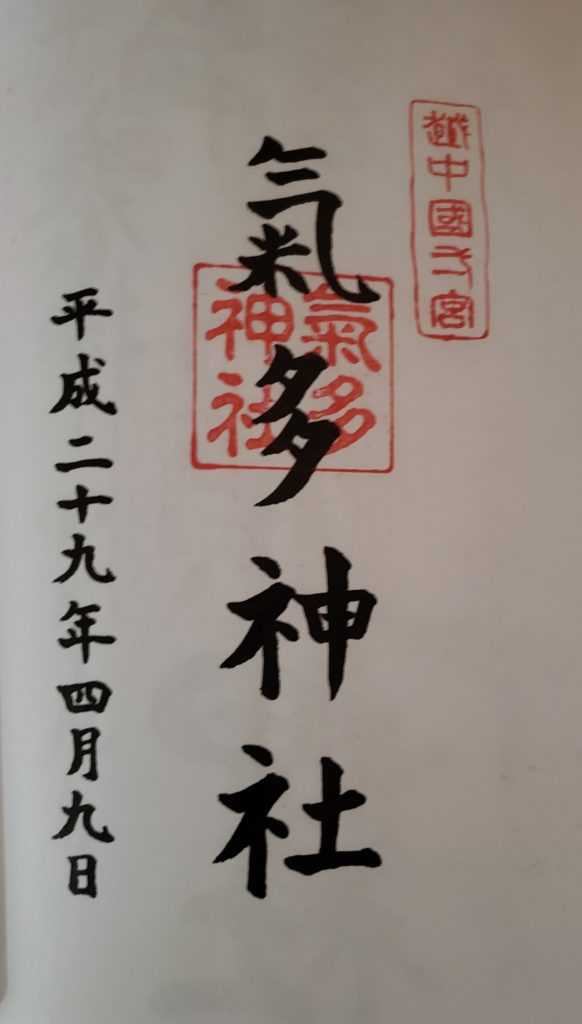 越中國弌宮
氣多神社
氣多
神社
平成二十九年四月九日